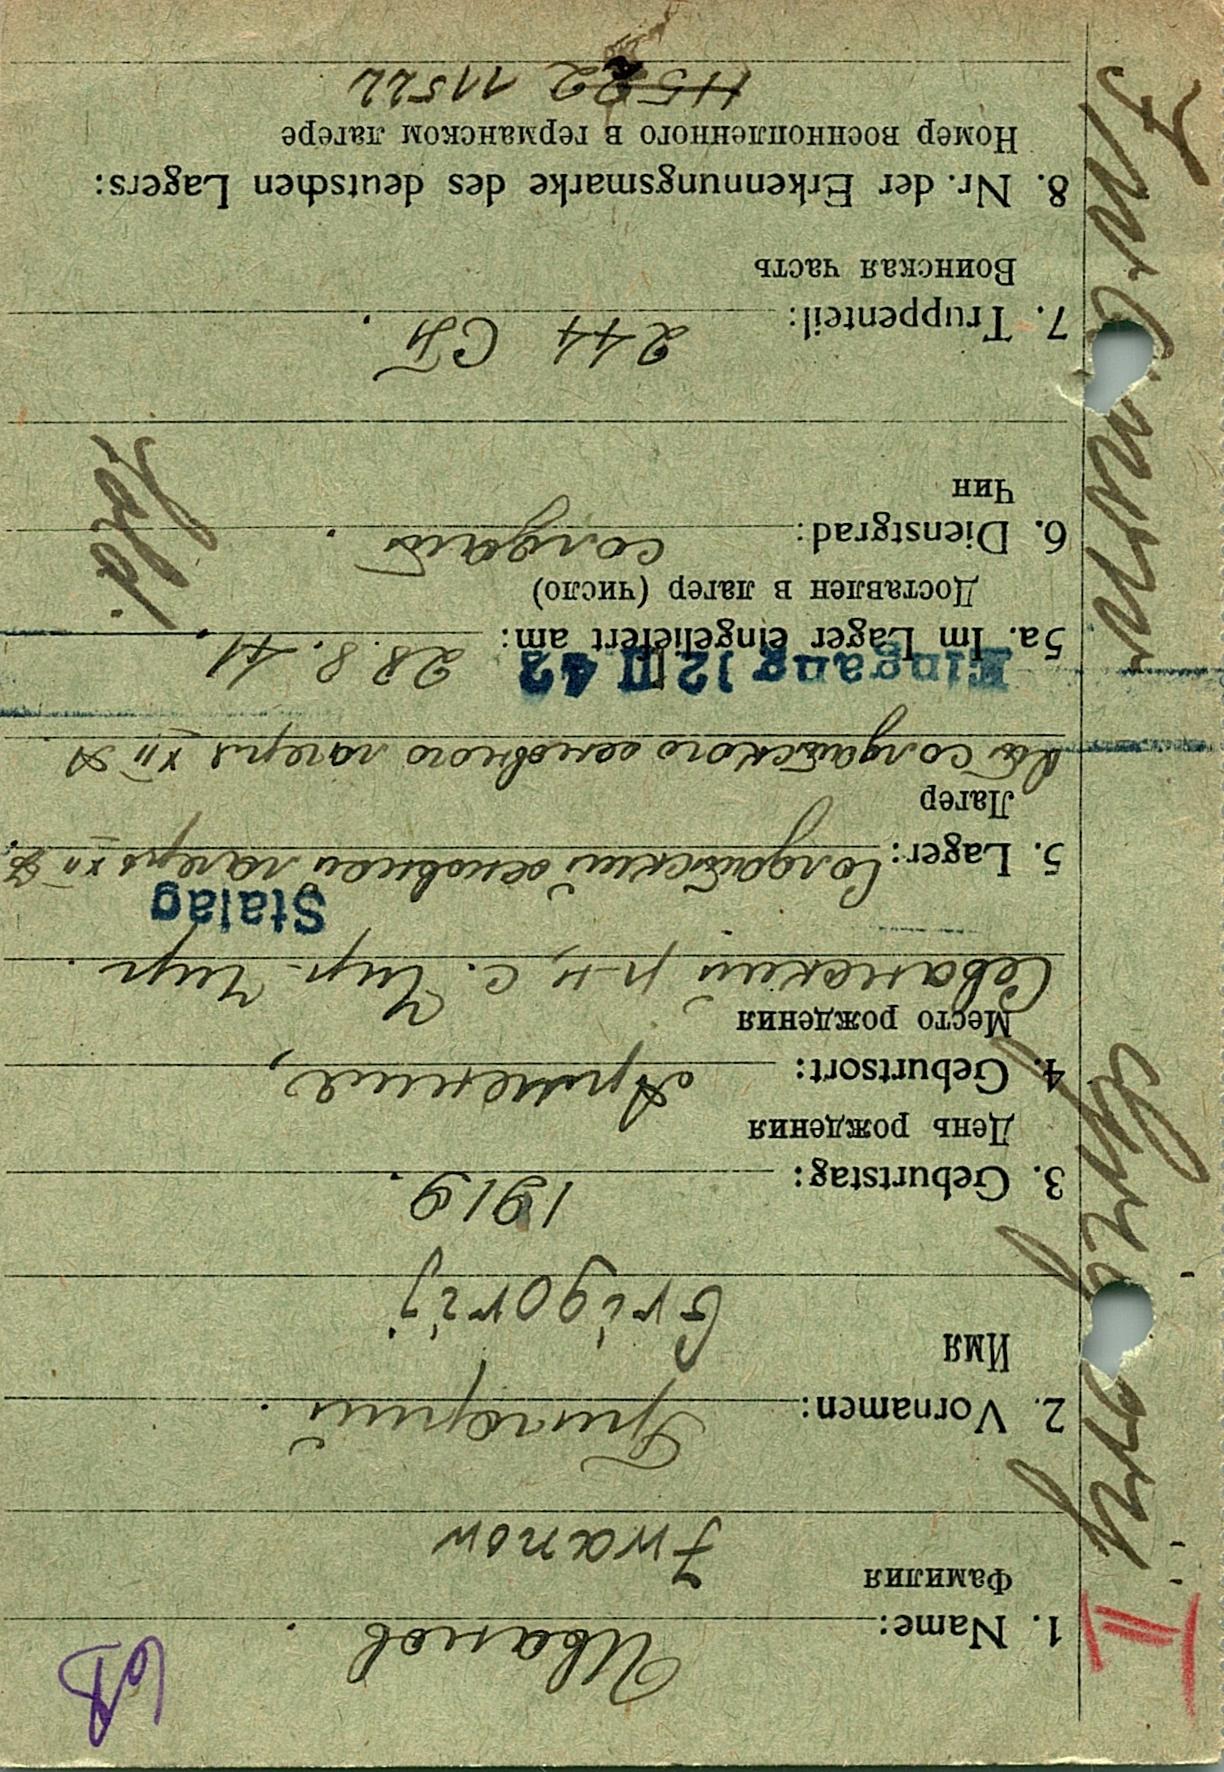 Иванов.
1. Name:
Фамилия
Iwanow
2. Vornamen: Григорий.
Имя
Grigorij
3. Geburtstag: 1919.
День рождения
4. Geburtsort: Армения,
Место рождения
Севанский р-н, с. Чир-Чир.
Stalag
5. Lager: Солдатский основной лагерь XII А.
Лагер
из солдатского основного лагеря XII А
Eingang 12 III 42
5a. Im Lager eingeliefert am: 28.8.41.
Доставлен в лагер (число)
6. Dienstgrad: солдат.
Чин
Sold.
7. Truppenteil: 244 СП.
Воинская часть
8. Nr. der Erkennungsmarke des deutschen Lagers:
Номер военнопленного в германском лагере
11522 11522
II